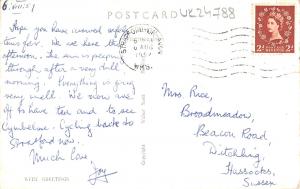 POSTCARD
UK24788
Hope you have arrived safely
this far. We are here this
afternoon. The sun is peeping
through after a very dull
morning. Everything is going
very well. We now are
off to have tea and to see
Cymbeline. Cycling back to
Stratford now.
Much love
Joy
WITH GREETINGS
Copyright
2D
Mrs. Rice,
Broadmeadow,
Beacon Road,
Ditchling,
Hassocks,
Sussex